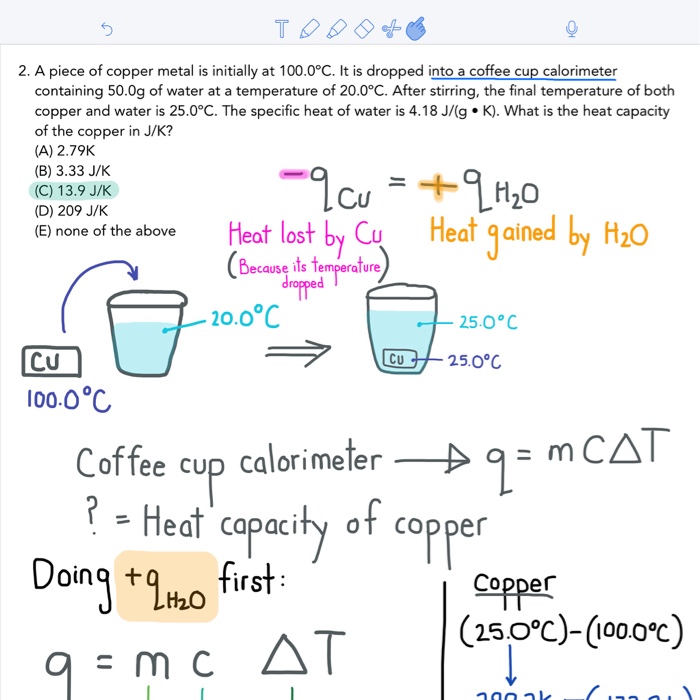 2. A piece of copper metal is initially at 100.0ºC. It is dropped into a coffee cup calorimeter
containing 50.0g of water at a temperature of 20.0ºC. After stirring, the final temperature of both
copper and water is 25.0ºC. The specific heat of water is 4.18 J/(g • K). What is the heat capacity
of the copper in J/K?
(A) 2.79K
(B) 3.33 J/K
(C) 13.9 J/K
(D) 209 J/K
(E) none of the above
-qCu = +qH₂O
Heat lost by Cu
(Because its temperature
dropped)
Heat gained by H₂O
20.0°C
25.0°C
Cu
25.0°C
Cu
100.0°C
Coffee cup calorimeter → q = mCΔT
? = Heat capacity of copper
Doing +qH₂O first:
q = m c ΔT
Copper
(25.0°C)-(100.0°C)